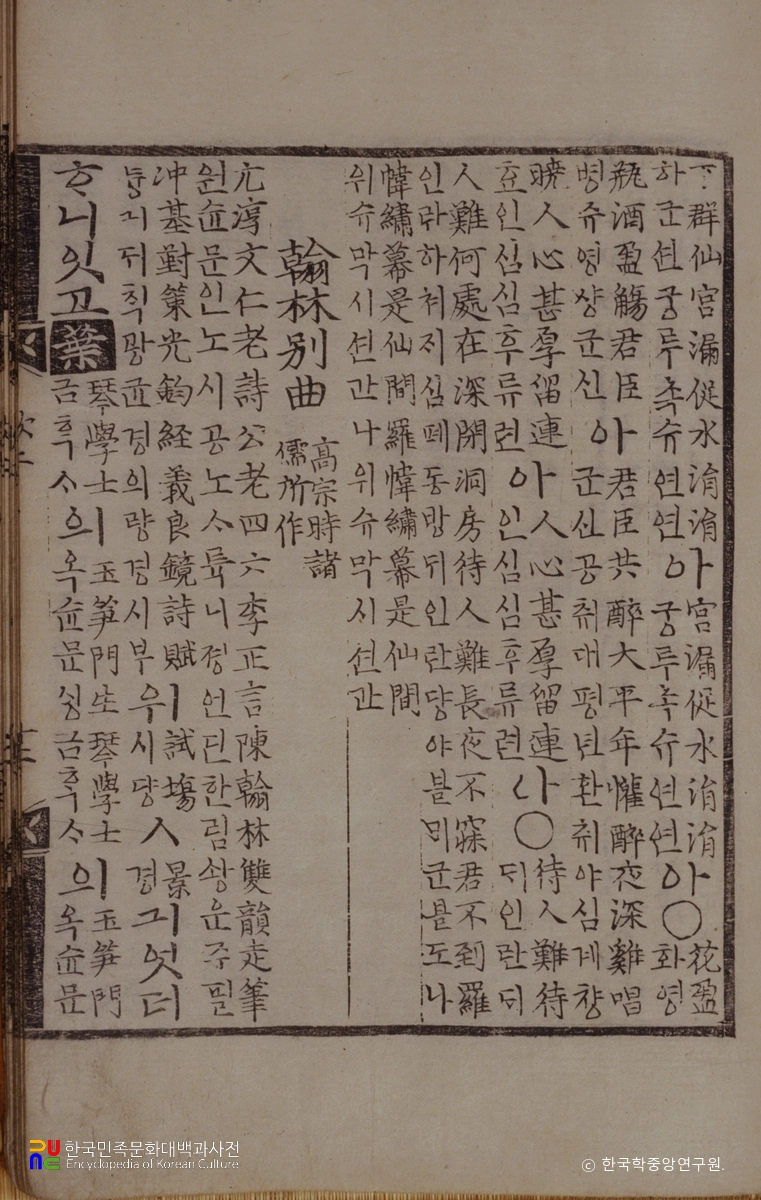 下群仙宮漏促水涓涓아宮漏促水涓涓아○花盈
하군션궁루촉슈연연궁루촉슈연연화영
甁酒盈觴君臣아君臣共醉大平年懽醉夜深雞唱
병슈영샹군신군신공취대평년환취야심계챵
曉人心甚厚留連아人心甚厚留連나○待人難待
효인심심후류련인심심후류련ᄃᆡ인란ᄃᆡ
人難何處在深閉洞房待人難長夜不寐君不到羅
인란하쳐ᄌᆡ심폐동방ᄃᆡ인란댱야블ᄆᆡ군블도나
幃繡幕是仙間羅幃繡幕是仙間
위슈막시션간나위슈막시션간
翰林別曲 高宗時諸
儒所作
元淳文仁老詩公老四六李正言陳翰林雙韻走筆
원슌문인노시공노ᄉᆞ륙니졍언딘한림솽운주필
沖基對策光鈞經義良鏡詩賦위試塲ㅅ景긔엇더
튱긔ᄃᆡ칙광균경의량경시부시댱경
ᄒᆞ니잇고葉琴學士의玉笋門生琴學士의玉笋門
금ᄒᆞᆨᄉᆞ옥슌문ᄉᆡᆼ금ᄒᆞᆨᄉᆞ옥슌문
한국민족문화대백과사전
Encyclopedia of Korean Culture
© 한국학중앙연구원.